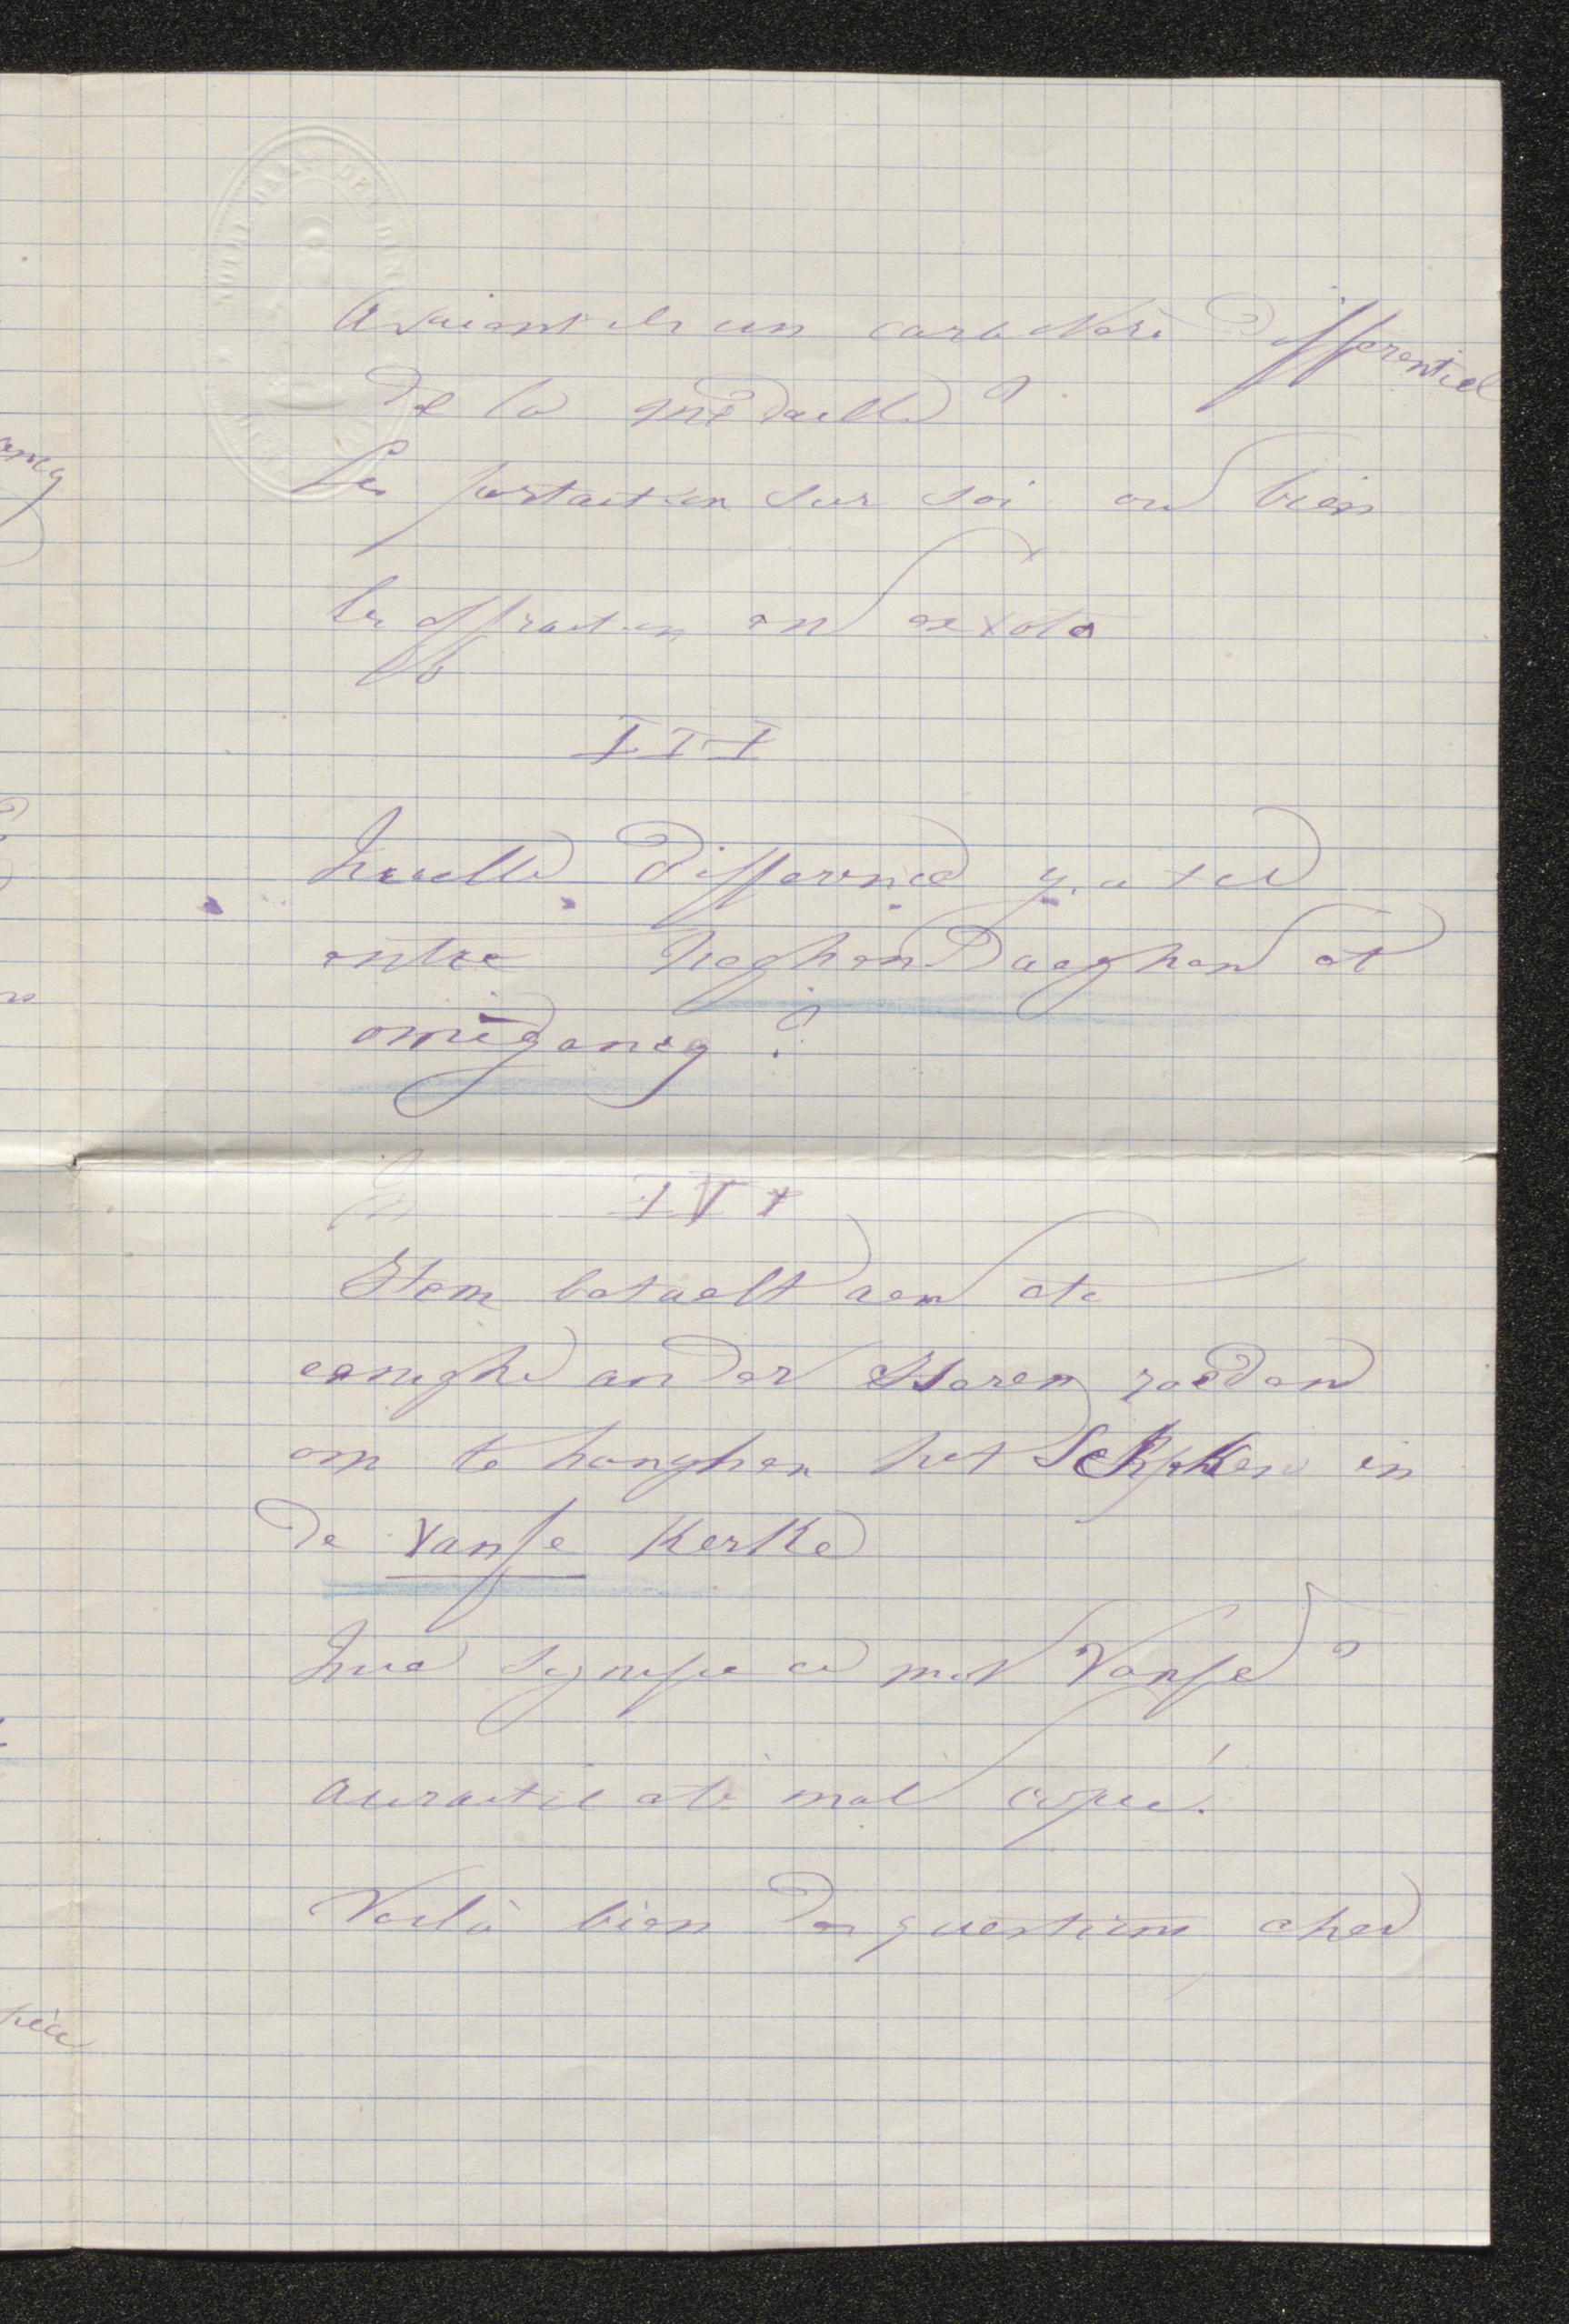 Avaient ils un caractère differentiel
de la médaille ?
Les portait on sur soi ou bien
les offrait on en exvoto
III
Quelle difference y a t il
entre heghen Daeghen et
omegancg ?
IV
Item betaelt aen etc
eenighe ander Heren roeden
om te hanghen het Schipken in
de Vanse Kerke
Que signifie ce mot Vanse ?
aurait il été mal copié!
Voilà bien des questions cher